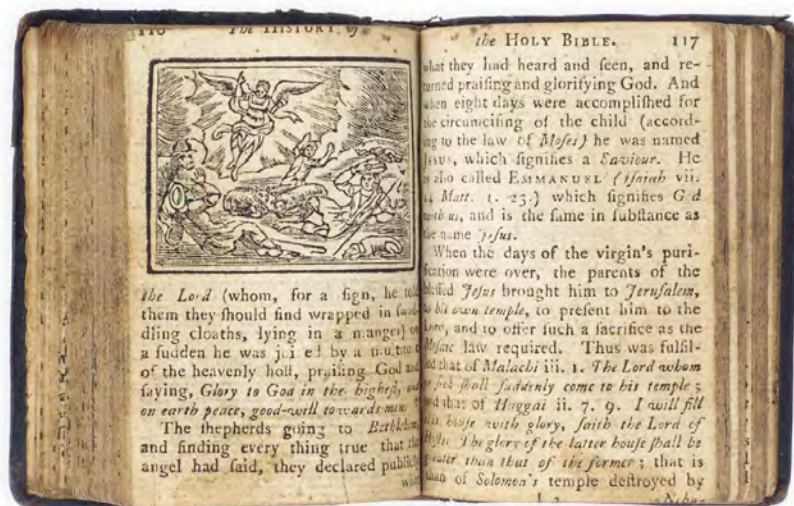 The HISTORY of
the Lord (whom, for a ſign, he told
them they ſhould find wrapped in ſwad-
dling cloaths, lying in a manger) on
a ſudden he was by a
of the heavenly hoſt, praiſing God and
ſaying, Glory to God in the higheſt, and
on earth peace, good-will towards men.
The ſhepherds going to Bethlehem,
and finding every thing true that the
angel had ſaid, they declared publicly
what
the HOLY BIBLE. 117
what they had heard and ſeen, and re-
turned praiſing and glorifying God. And
when eight days were accompliſhed for
the circumciſing of the child (accord-
ing to the law of Moſes) he was named
Jesus, which ſignifies a Saviour. He
is alſo called EMMANUEL (Iſaiah vii.
14 Matt. 1. 23.) which ſignifies G d
with us, and is the ſame in ſubſtance as
the name Jeſus.
When the days of the virgin's puri-
fication were over, the parents of the
bleſſed Jeſus brought him to Jeruſalem,
to his own temple, to preſent him to the
Lord, and to offer ſuch a ſacrifice as the
Moſaic law required. Thus was fulfil-
led that of Malachi iii. 1. The Lord whom
ye ſeek ſhall ſuddenly come to his temple;
and that of Haggai ii. 7. 9. I will fill
this houſe with glory, ſaith the Lord of
Hoſts. The glory of the latter houſe ſhall be
greater than that of the former; that is
than of Solomon's temple deſtroyed by
Nebu-